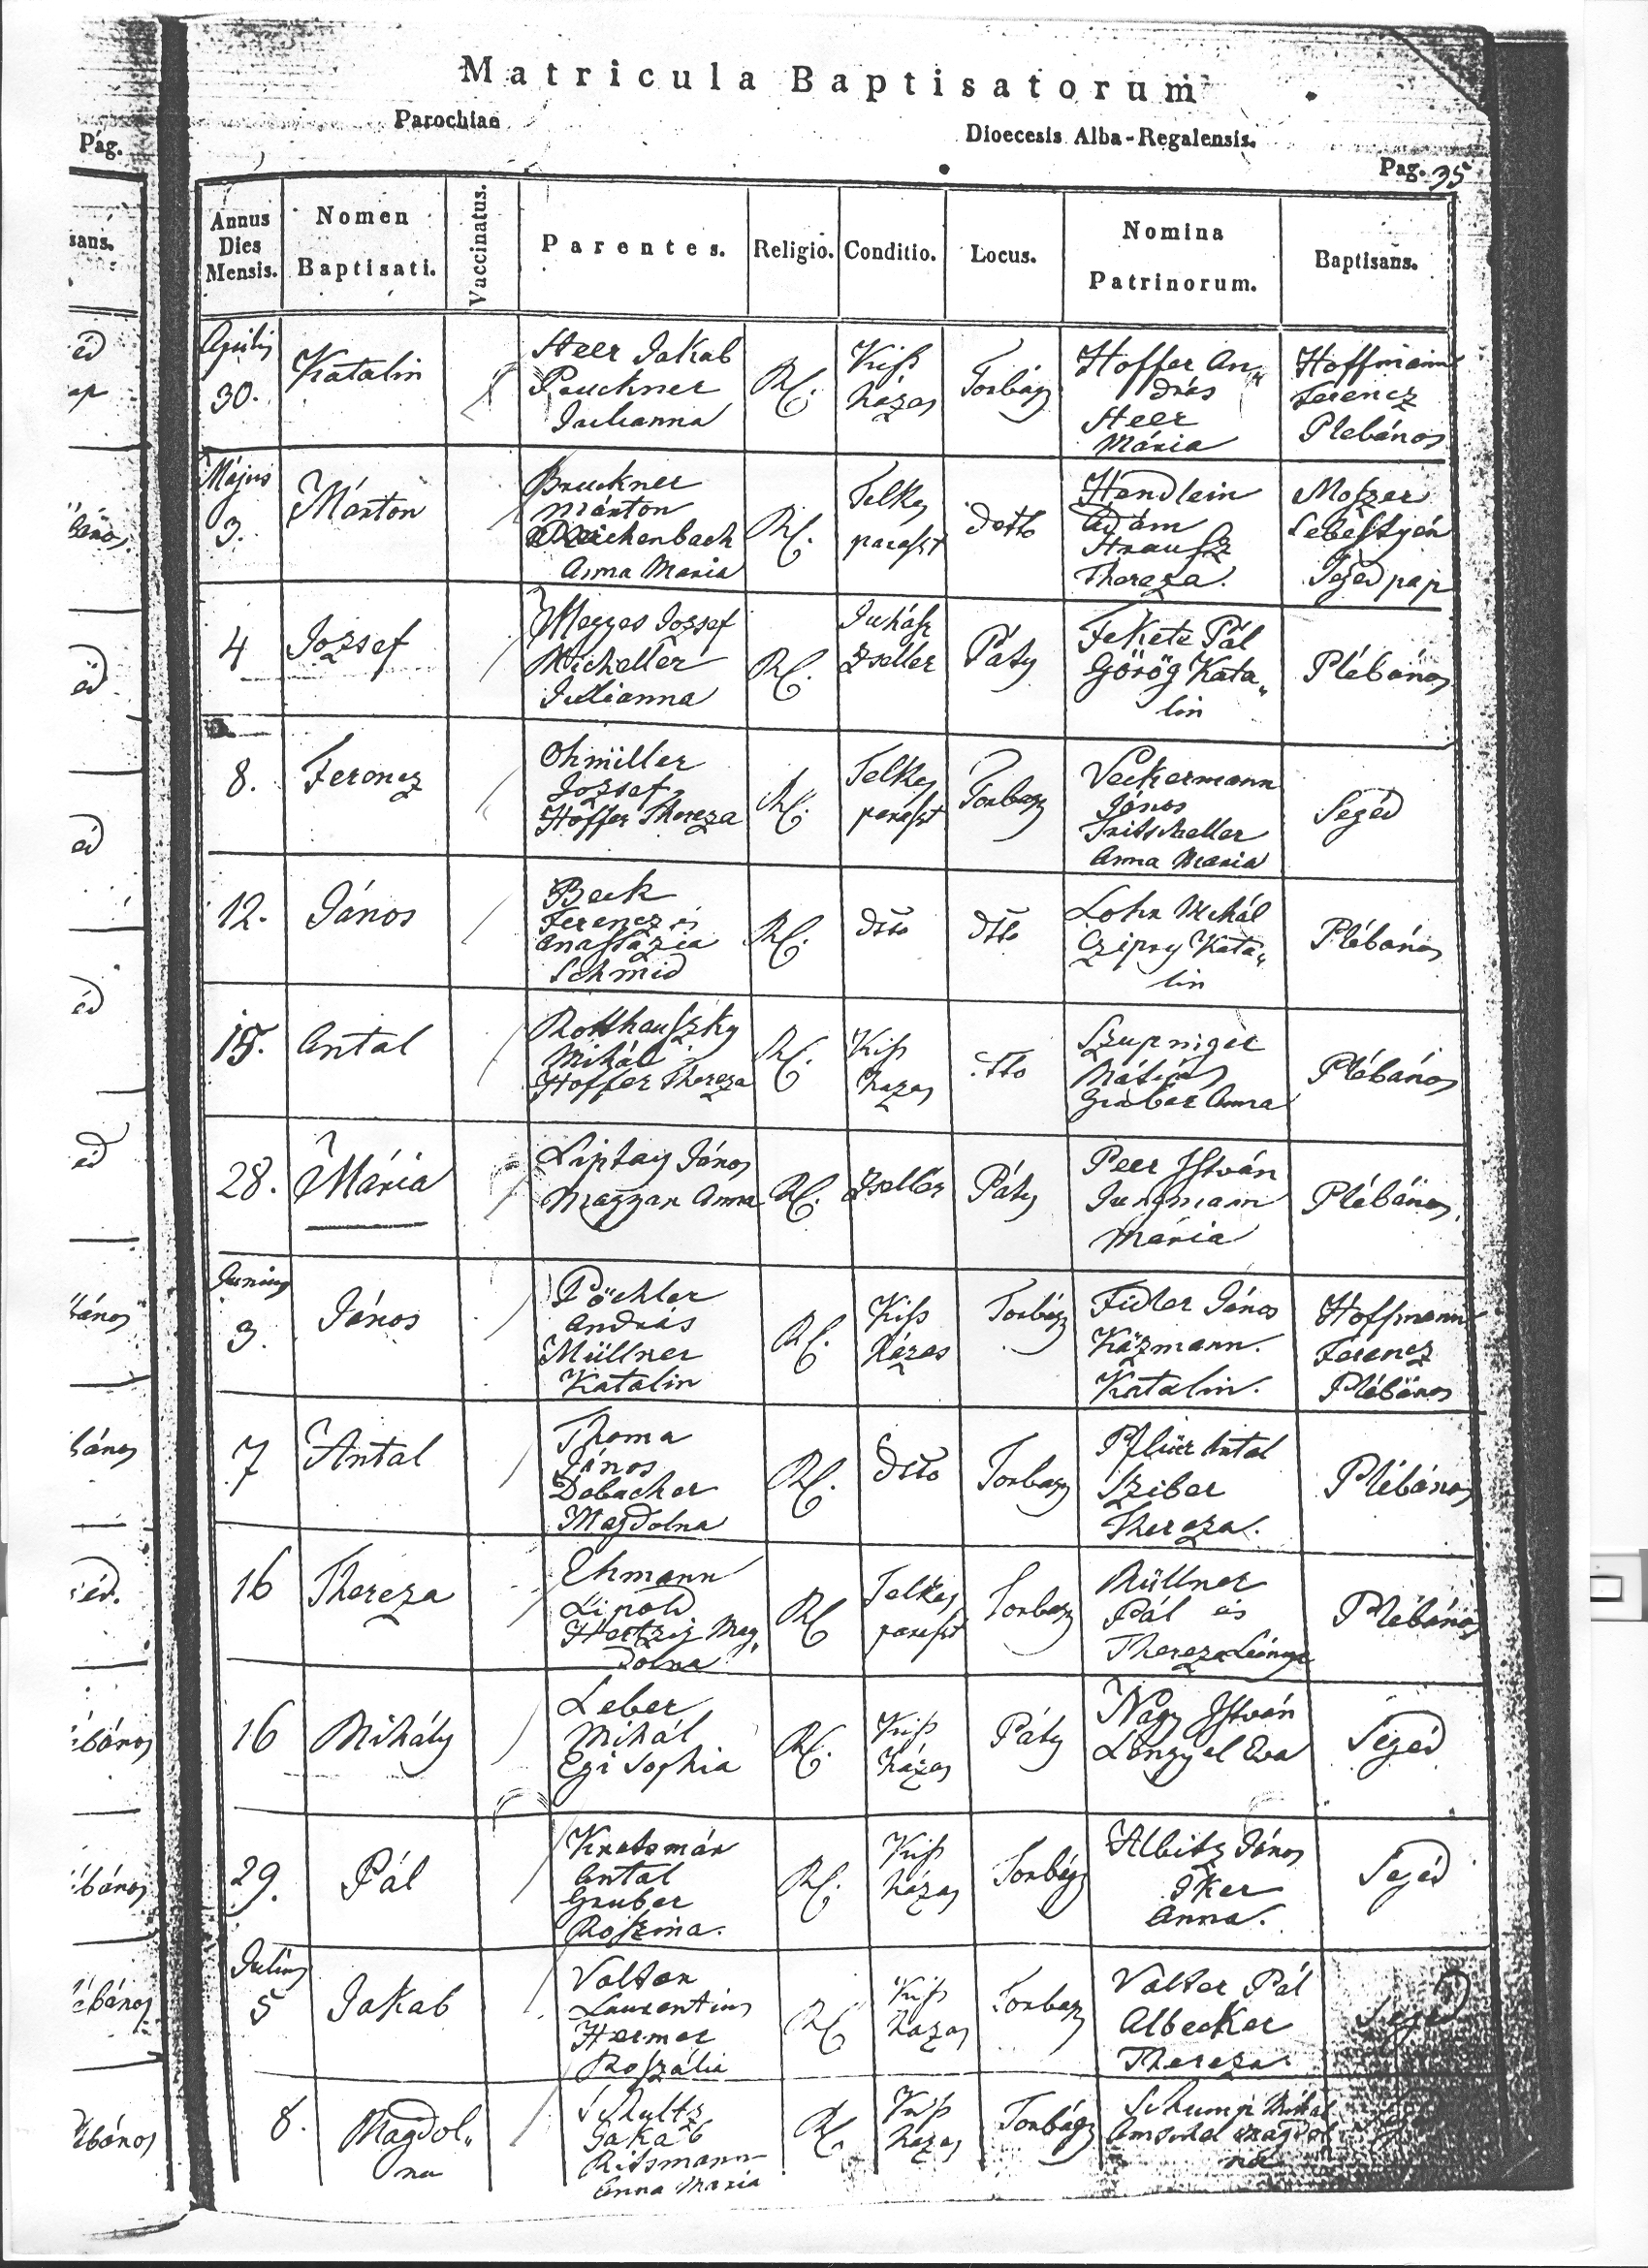 Matricula Baptisatorum
Parochiae
Dioecesis Alba-Regalensis.
Pág.
Pag. 35
Annus Dies Mensis.
Nomen Baptisati.
Vaccinatus.
Parentes.
Religio.
Conditio.
Locus.
Nomina Patrinorum.
Baptisans.
sans.
Aprilis
30.
Katalin
Heer Jakab
Pruckner
Julianna
RC.
Kiss
házas
Torbágy
Hoffer An„
drás
Heer
Mária
Hoffmann
Ferencz
Plebános
Május
3.
Márton
Bruckner
Márton
Reichenbach
Anna Maria
RC.
Telkes
paraszt
Detto
Hendlein
Adám
Strausz
Thereza.
Moszer
Sebestyén
Segéd pap
4
Jozsef
Megyes Jozsef
Micheller
Julianna
RC.
Juhász
Zseller
Páty
Fekete Pál
Görög Kata„
lin
Plébános
8.
Ferencz
Ohmüller
Jozsef
Hoffer Thereza
RC.
Telkes
paraszt
Torbagy
Veckermann
János
Tritscheller
Anna Maria
Segéd
12.
János
Beck
Ferencz és
Anasztázia
Schmid
RC.
Dtto
Dtto
Lohr Mihál
Czipry Kata„
lin
Plébános
15.
Antal
Rotthauszky
Mihál
Hoffer Thereza
RC.
Kiss
hazas
Dtto
Szupniger
Mátyás
Gruber Anna
Plébános
28.
Mária
Liptay János
Magyar Anna
RC.
Zsellér
Páty
Peer István
Jungmann
Mária
Plébános
Junius
3.
János
Pöchler
András
Müllner
Katalin
RC.
Kiss
házas
Torbágy
Fidler János
Käzmann.
Katalin.
Hoffmann
Ferencz
Plébános
7
Antal
Thoma
János
Debacher
Magdolna
RC.
Dtto
Torbagy
Pflür Antal
Sziber
Thereza.
Plébános
16
Thereza
Ehmann
Lipold
Hertzig Mag„
dolna
RC
Telkes
paraszt
Torbagy
Müllner
Pál és
Thereza Leánya
Plébános
16
Mihály
Leber
Mihál
Egi Sophia
RC.
Kiss
házas
Páty
Nagy István
Lengyel Eva
Segéd
29.
Pál
Kratsmár
Antal
Gruber
Roszina.
RC.
Kiss
házas
Torbágy
Albitz János
Iker
Anna.
Segéd
Julius
5
Jakab
Volter
Laurentius
Hermer
Roszália
RC
Kiss
hazas
Torbagy
Valter Pál
Albecker
Thereza.
Segéd
8.
Magdol„
na
Schultz
Jakab
Ritsmann
Anna Maria
RC.
Kiss
házas
Torbágy
Schumpi Mihál
Magdol
na